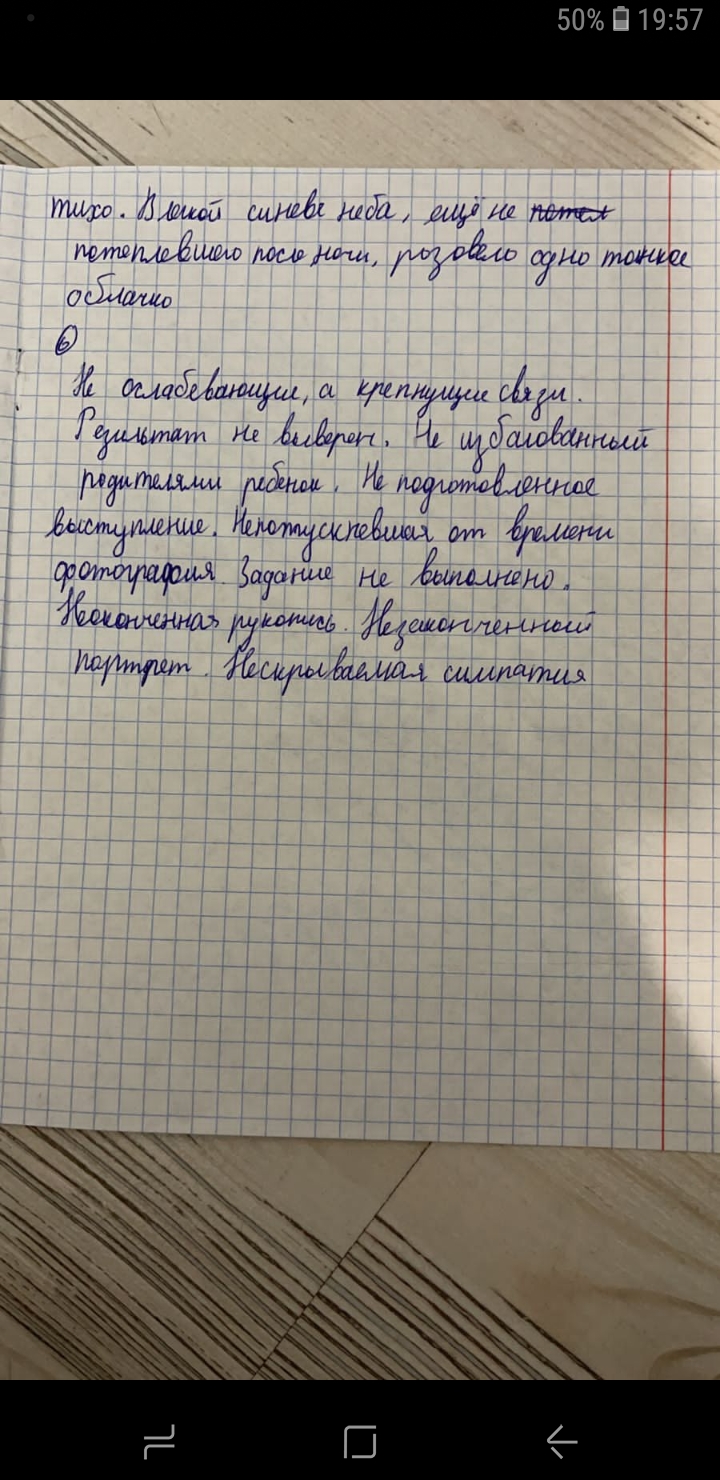 50% 19:57
тихо. В лёгкой синеве неба, ещё не потел
потеплевшего после ночи, розовело одно тонкое
облачко
6
Не ослабевающие, а крепнущие связи.
Результат не выверен. Не избалованный
родителями ребенок. Не подготовленное
выступление. Непотускневшая от времени
фотография. Задание не выполнено.
Неоконченная рукопись. Незаконченный
портрет. Нескрываемая симпатия